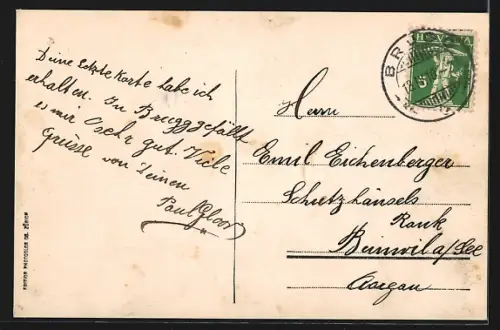 Deine letzte Karte habe ich
erhalten. In Brugg gefällt
es mir sehr gut. Viele
Grüsse von Deinem
Paul Gloor
Herrn
Emil Eichenberger
Schutzhänsels
Rank
Beinwil a/See
Aargau
HELVETIA